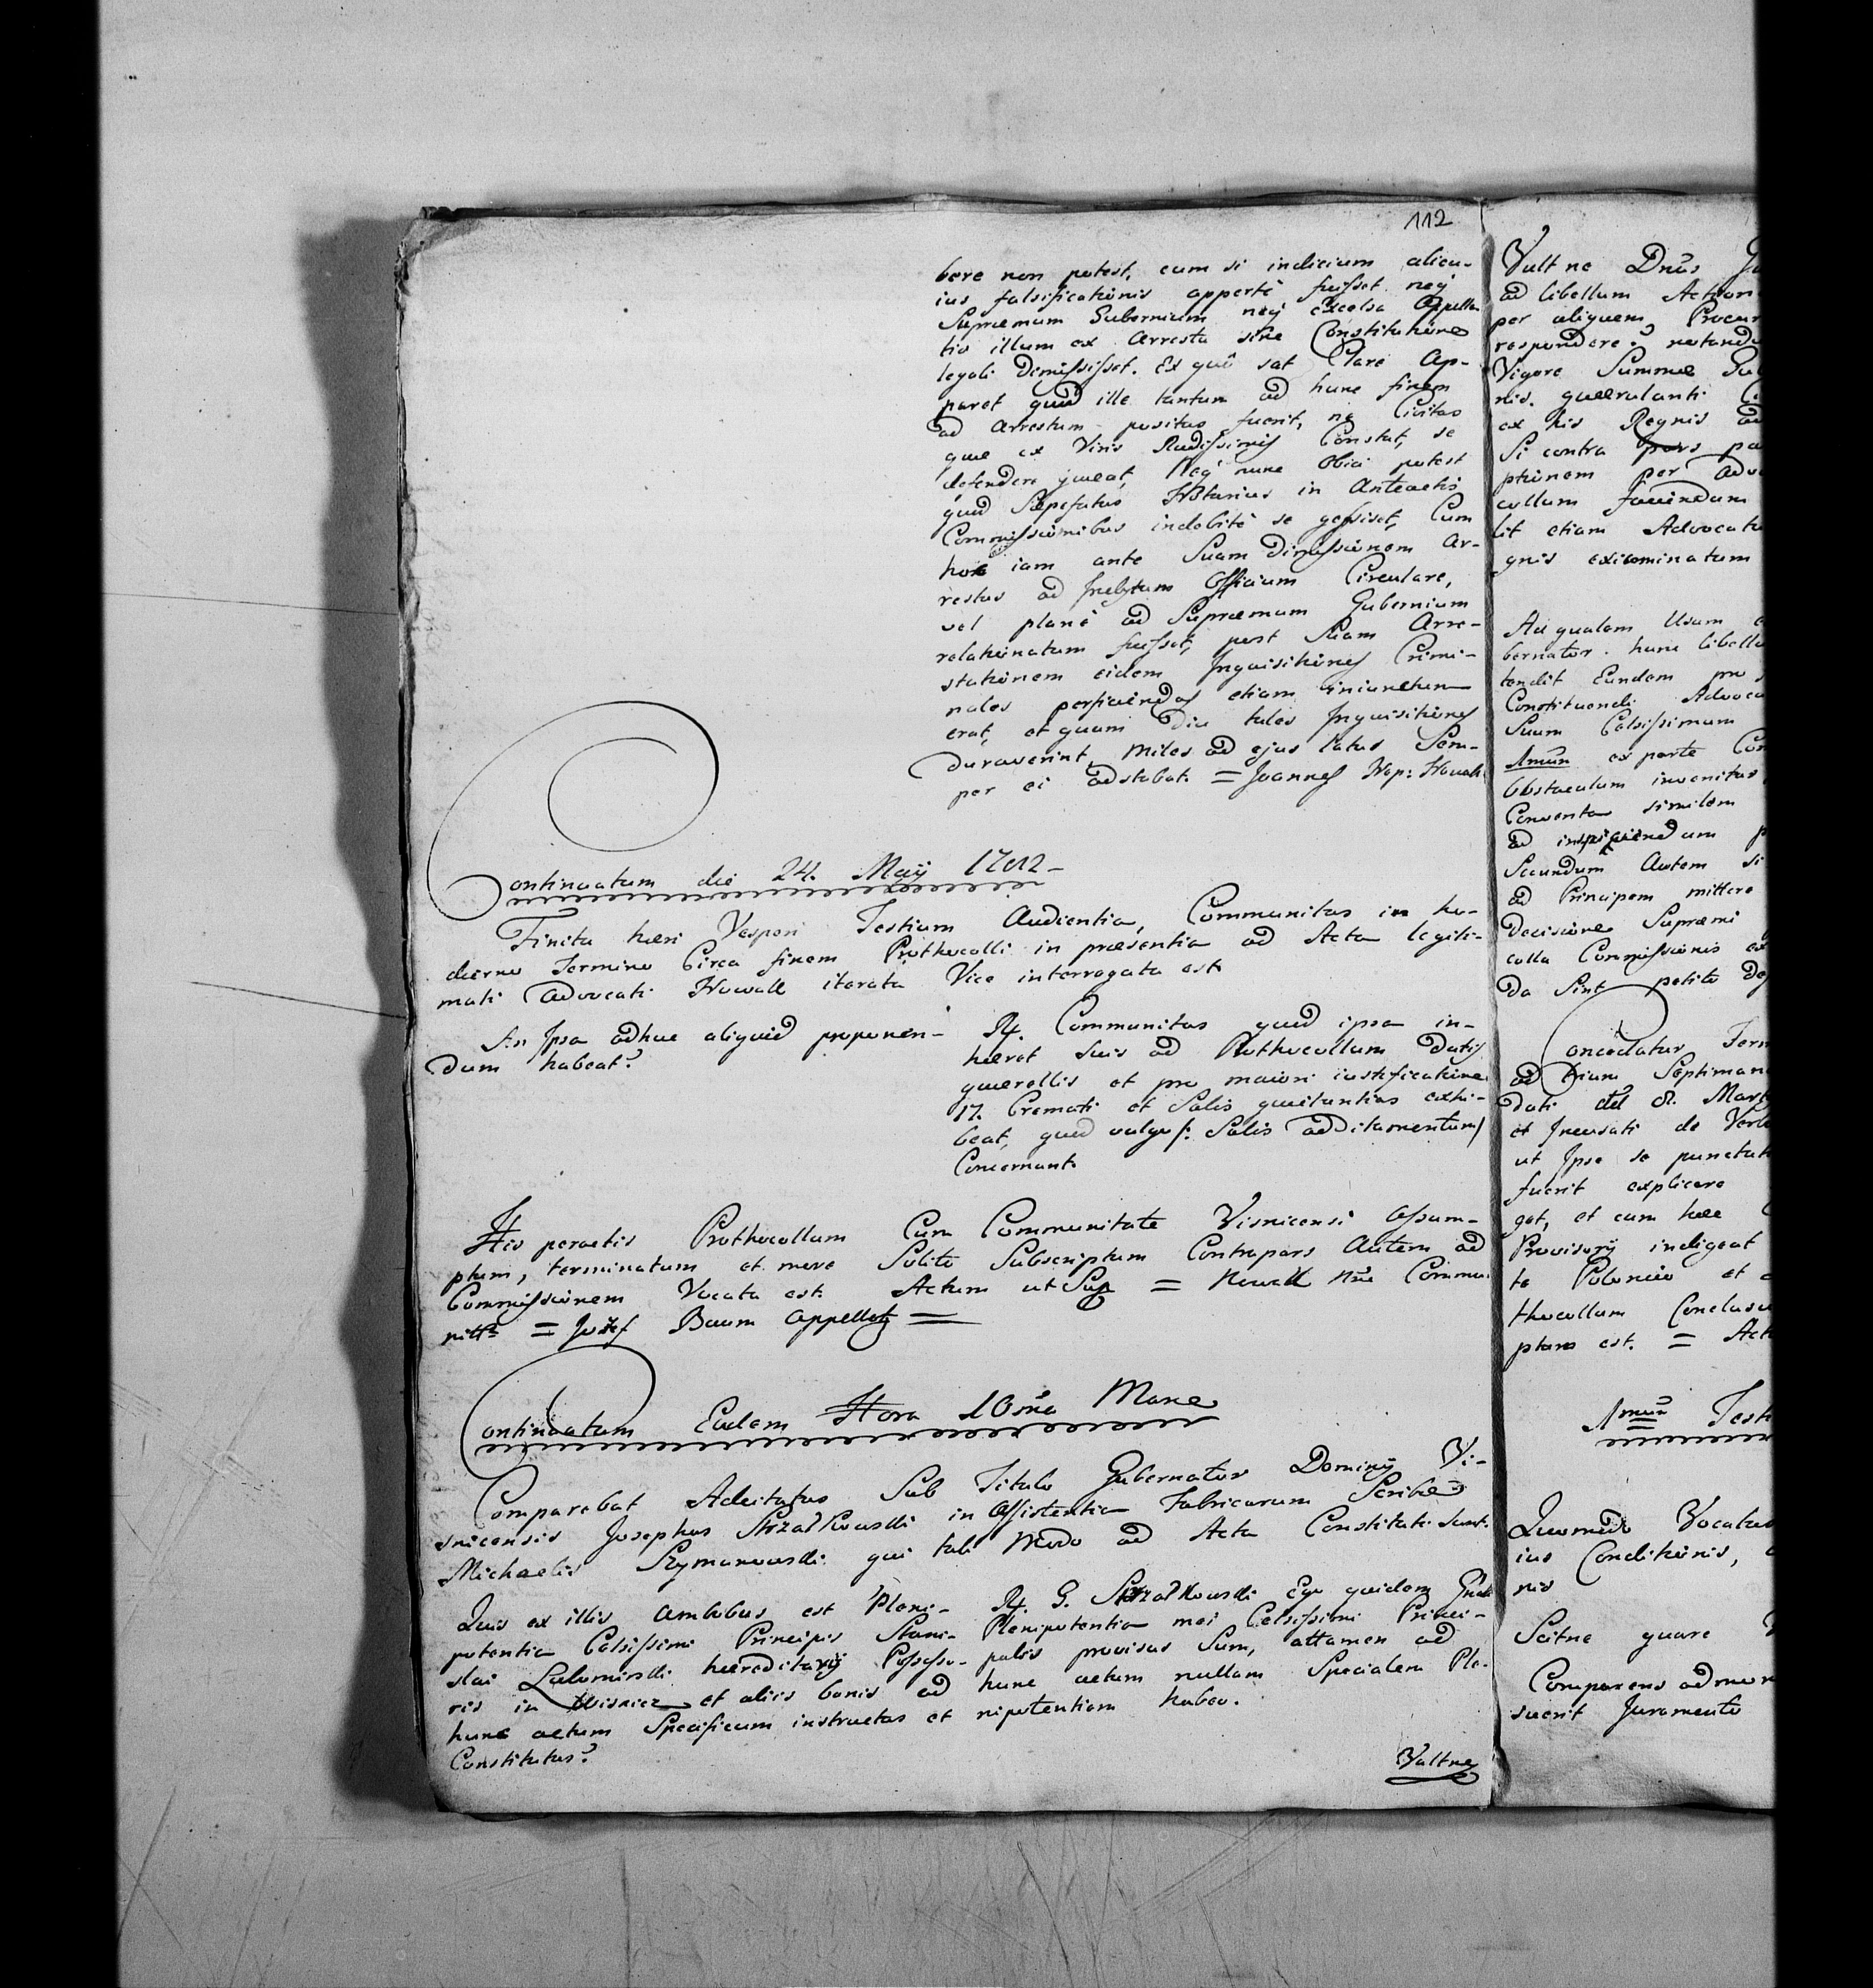 112
bere non potest, cum si indicium alicu-
ius falsificationis apperte fuisset neq
Supremum Gubernium neq Excelsa Appella
tio illum ex Arresto sine Constitutione
legali Demisisset. Ex quo sat Clare Ap-
paret quod ille tantum ad hunc finem
ad Arrestum positus fuerit, ne Civitas
quae ex Viris Rudissimis Constat, se
defendere queat, Neq nunc Obici potest
quod Saepefatus Notarius in Anteactis
Commissionibus indebite se gessisset, Cum
hoc iam ante Suam Dimissionem Ar-
restus ad Inclytum Officium Circulare,
vel plane ad Supremum Gubernium
relationatum fuisset, post Suam Arre-
stationem eidem Inquisitiones Crimi-
nales perficiendas etiam iniunctum
erat, et quam Diu tales Inquisitiones
Duraverint, Miles ad ejus latus Sem-
per ei adstabat. = Joannes Nep: Nowak
Continuatum die 24. Maÿ 1782-
Finita heri Vesperi Testium Audientia, Communitas in ho-
dierno Termino Circa finem Prothocolli in praesentia ad Acta legiti-
mati Advocati Nowak iterata Vice interrogata est
An Ipsa adhuc aliquid proponen-
dum habeat?
R. Communitas quod ipsa in-
haeret suis ad Prothocollum Datis
querellis et pro maiori iustificatione
17. Cremati et Salis quietantias exhi-
beat, quod vulgo /: Salis additamentum /
Concernunt.
His peractis Prothocollum Cum Communitate Visnicensi Assum-
ptum, terminatum et more Solito Subscriptum Contrapars Autem ad
Commissionem Vocata est. Actum ut Supa = Nowak Nne Commu
nitts = Josef Baum Appellg =
Continuatum Eadem Hora 10ma Mane
Comparebat Adcitatus Sub Titulo Gubernator Dominÿ Vi-
snicensis Josephus Strzałkowski in Assistentia Fabricarum Scribae
Michaelis Szymanowski qui tali Modo ad Acta Constituti Sunt.
Quis ex illis Ambobus est Pleni-
potentia Celsissimi Principis Stani-
slai Lubomirski haereditarÿ Possesso-
ris in Wisnicz et aliis bonis ad
hunc actum Specificum instructus et
Constitutus?
R. G. Strzałkowski Ego quidem
Plenipotentia mei Celsissimi Princi-
palis provisus Sum, attamen ad
hunc actum nullam Specialem Ple-
nipotentiam habeo.
Vultne
Vult ne Dnus
ad libellum Action
per aliquem Procur
respondere?
Vigore Summae
nis. querulanti
ex his Regnis ad
Si contra pars pa
ptionem per Advo
collum faciendum
lit etiam Advocatu
gnis exicominatum
Ad qualem Usum
bernator hunc libellu
tendit Eundem pro
Constituendi Advoca
Suum Celsissimum
1mum ex parte Con
Obstaculum invenitur
Conventa similem
ad inspiciendum
Secundum Autem si
ad Principem mittere
Decisione Supremi
colla Commissionis ex
da Sint petito
Concedatur Term
ad trium Septiman
Dati
et Incusati de Verb
ut Ipse se punctat
fuerit explicare
get, et cum haec
Provisorÿ indigeat
te Poloniae et
thocollum Conclusu
ptum est. = Act
1mum Test
Quomodo Vocatur
ius Conditionis,
nis
Scitne quare
Comparens admon
suerit Juramento